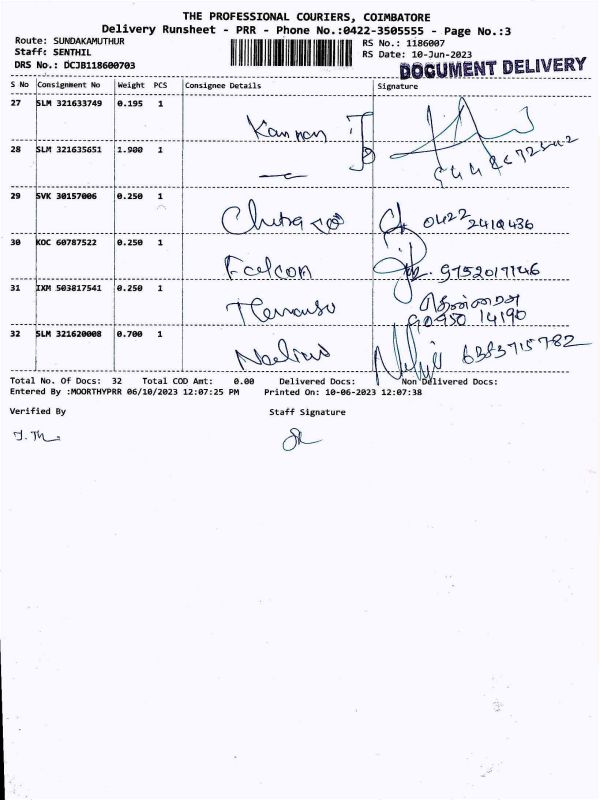 THE PROFESSIONAL COURIERS, COIMBATORE
Delivery Runsheet - PRR - Phone No.:0422-3505555 - Page No.:3
Route: SUNDAKAMUTHUR
Staff: SENTHIL
DRS No.: DCJB118600703
RS No.: 1186007
RS Date: 10-Jun-2023
DOCUMENT DELIVERY
S No Consignment No Weight PCS Consignee Details Signature
27 SLM 321633749 0.195 1
Kannan
28 SLM 321635651 1.900 1
29 SVK 30157006 0.250 1
0422 2410436
30 KOC 60787522 0.250 1
Falcon 9752017146
31 IXM 503817541 0.250 1
90950 14190
32 SLM 321620008 0.700 1
6383715782
Total No. Of Docs: 32 Total COD Amt: 0.00 Delivered Docs: Non Delivered Docs:
Entered By :MOORTHYPRR 06/10/2023 12:07:25 PM Printed On: 10-06-2023 12:07:38
Verified By Staff Signature